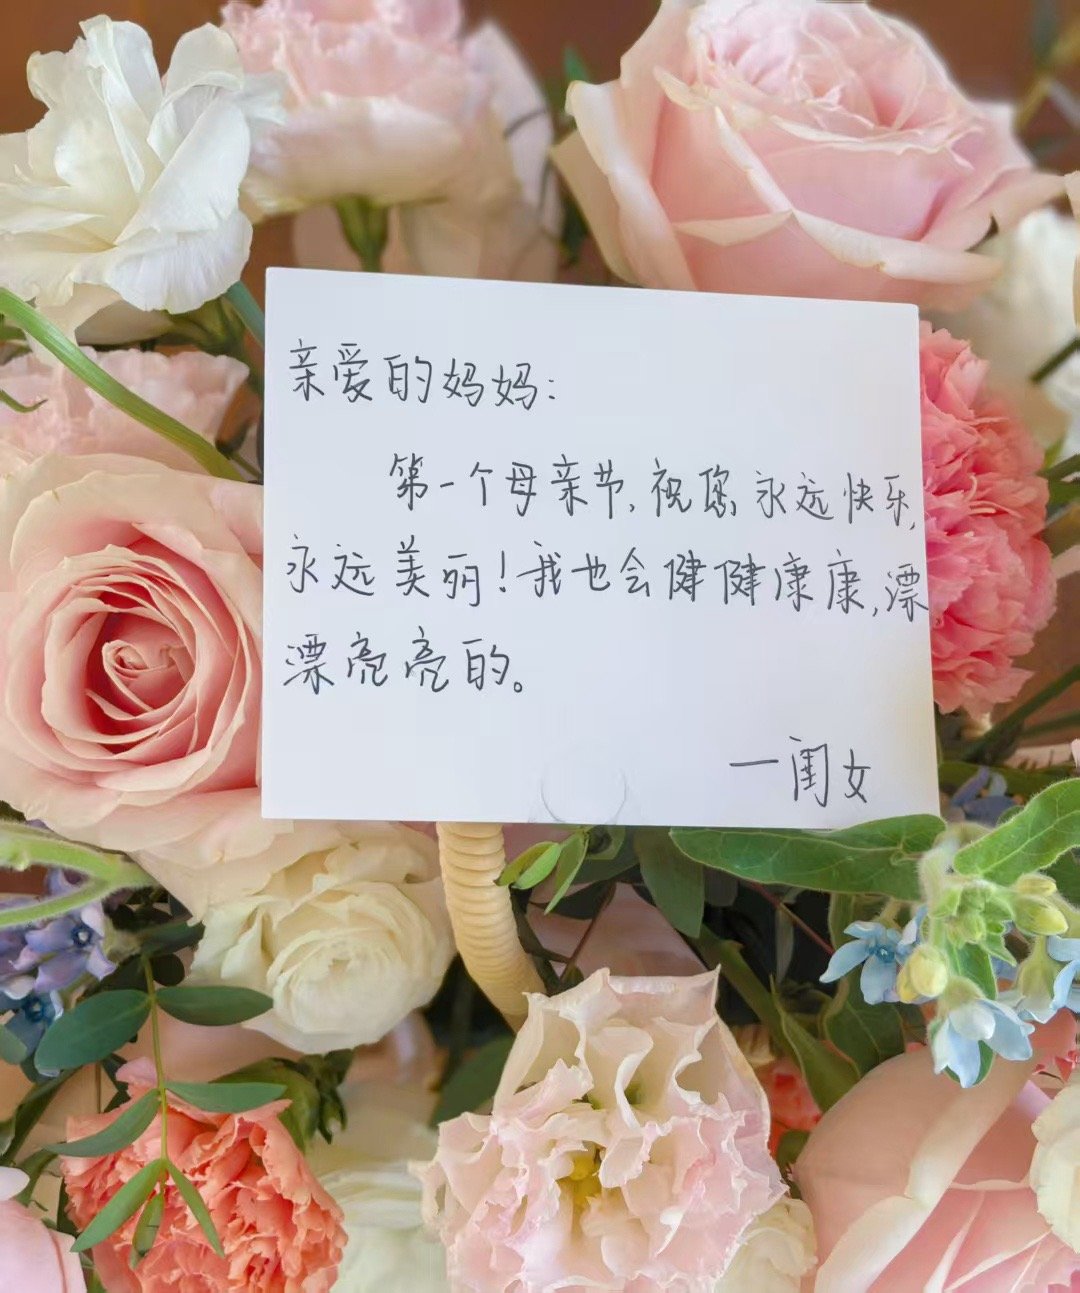 亲爱的妈妈:
第一个母亲节,祝您永远快乐,
永远美丽!我也会健健康康,漂
漂亮亮的。
一闺女